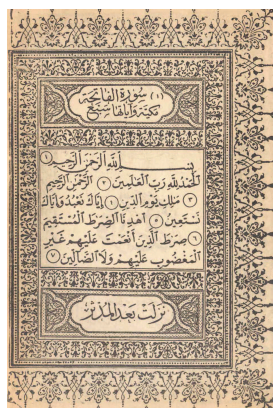 (١) سورة الفاتحة
مكية وآياتها سبع
بسم الله الرحمن الرحيم ١
الحمد لله رب العلمين ٢ الرحمن الرحيم
٣ ملك يوم الدين ٤ إياك نعبد وإياك
نستعين ٥ اهدنا الصرط المستقيم
٦ صرط الذين أنعمت عليهم غير
المغضوب عليهم ولا الضالين ٧
نزلت بعد المدثر